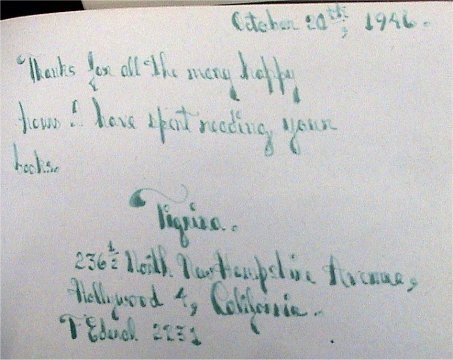 October 20th, 1946.
Thanks for all the many happy
hours I have spent reading your
books.
236½ North New Hampshire Avenue,
Hollywood 4, California.
2231